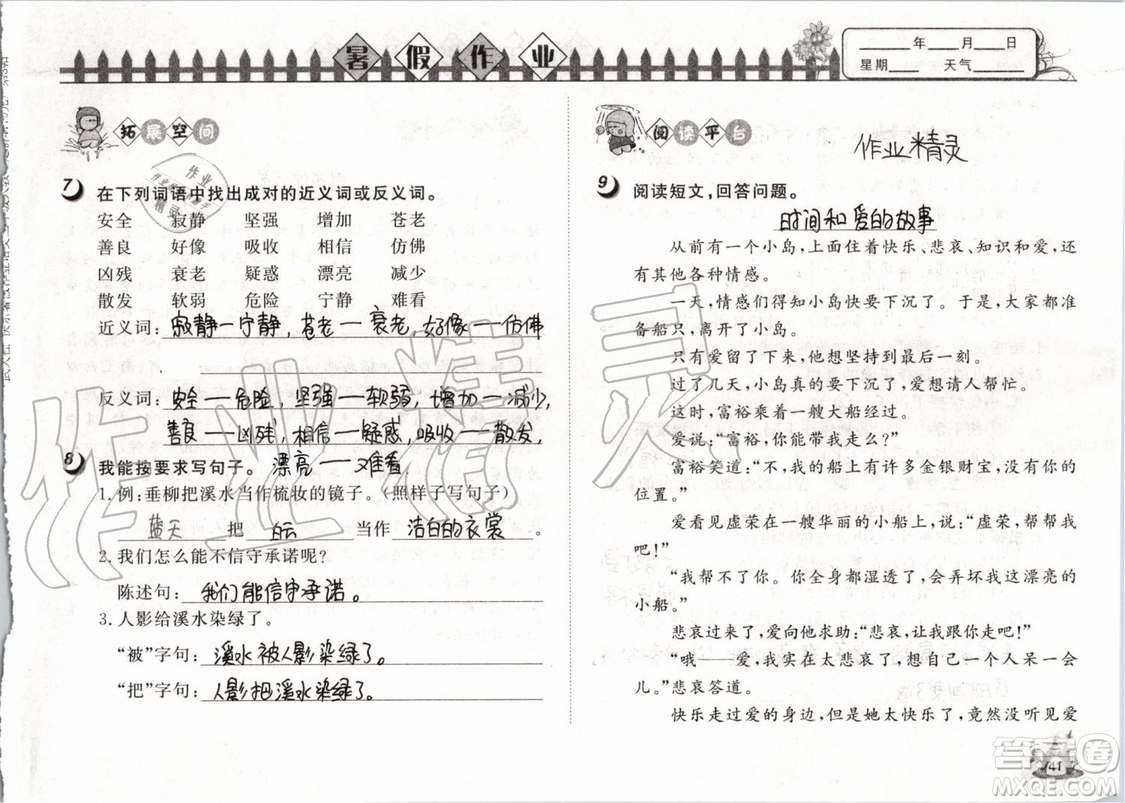 暑假作业
年 月 日
星期 天气
拓展空间
7 在下列词语中找出成对的近义词或反义词。
安全 寂静 坚强 增加 苍老
善良 好像 吸收 相信 仿佛
凶残 衰老 疑惑 漂亮 减少
散发 软弱 危险 宁静 难看
近义词：寂静一宁静，苍老一衰老，好像一仿佛
反义词：安全一危险，坚强一软弱，增加一减少，
善良一凶残，相信一疑惑，吸收一散发，
漂亮一难看
8 我能按要求写句子。
1.例：垂柳把溪水当作梳妆的镜子。（照样子写句子）
蓝天 把 白云 当作 洁白的衣裳 。
2.我们怎么能不信守承诺呢？
陈述句：我们能信守承诺。
3.人影给溪水染绿了。
“被”字句：溪水被人影染绿了。
“把”字句：人影把溪水染绿了。
阅读平台
作业精灵
9 阅读短文，回答问题。
时间和爱的故事
从前有一个小岛，上面住着快乐、悲哀、知识和爱，还
有其他各种情感。
一天，情感们得知小岛快要下沉了。于是，大家都准
备船只，离开了小岛。
只有爱留了下来，他想坚持到最后一刻。
过了几天，小岛真的要下沉了，爱想请人帮忙。
这时，富裕乘着一艘大船经过。
爱说：“富裕，你能带我走么？”
富裕笑道：“不，我的船上有许多金银财宝，没有你的
位置。”
爱看见虚荣在一艘华丽的小船上，说：“虚荣，帮帮我
吧！”
“我帮不了你。你全身都湿透了，会弄坏我这漂亮的
小船。”
悲哀过来了，爱向他求助：“悲哀，让我跟你走吧！”
“哦——爱，我实在太悲哀了，想自己一个人呆一会
儿。”悲哀答道。
快乐走过爱的身边，但是她太快乐了，竟然没听见爱
41
作业精灵
答案圈
MXQE.COM